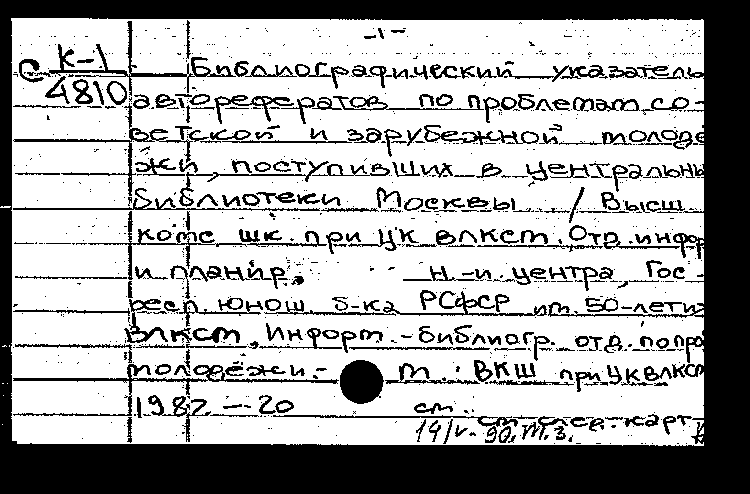 -1-
С К-1
4810
Библиографический указатель
авторефератов по проблемам со-
ветской и зарубежной молоде
жи, поступивших в централны
библиотеки Москвы / Высш.
комс. шк. при ЦК ВЛКСМ. Отд. инфор
и планир. н.-и. центра, Гос-
респ. юнош. б-ка РСФСР им. 50-летия
ВЛКСМ, Информ.-библиогр. отд. по про
молодёжи.- М.: ВКШ при ЦК ВЛКСМ
1987.-20 см.
см. след. карт
14/V-90. М.З.